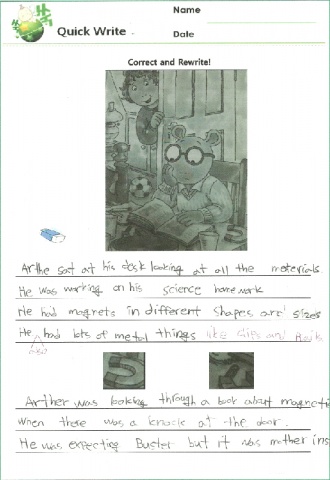 Name
Quick Write
Date
Correct and Rewrite!
Arthe sat at his desk looking at all the materials.
He was working on his science homework
He had magnets in different shapes and sizes
He had lots of metal things like clips and
also
Arther was looking through a book about magneti
when there was a knock at the door.
He was expecting Buster but it was mother ins